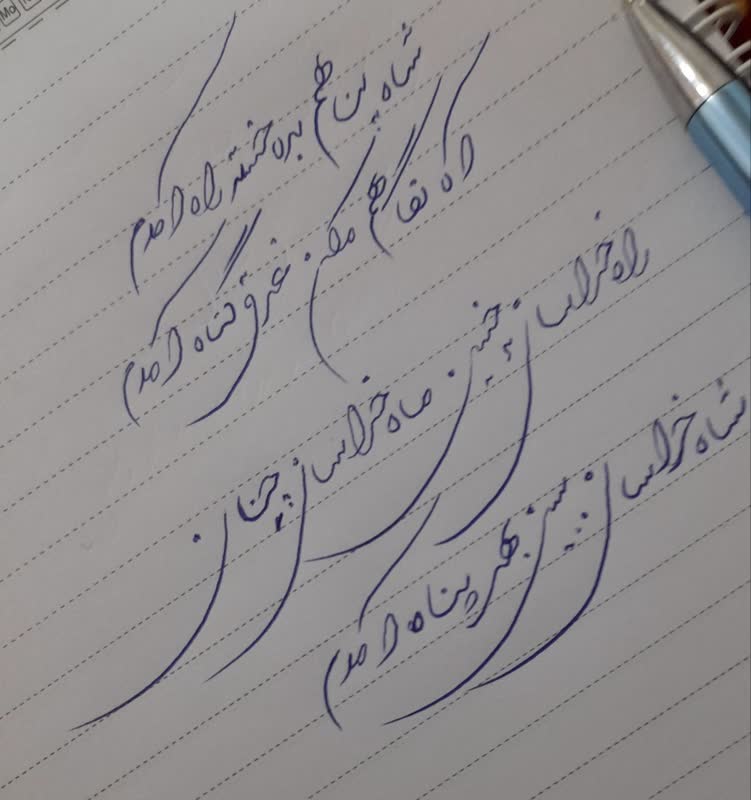 شاه پناهم بده خسته راه آمدم
آه نگاهم مکن غرق گناه آمدم
راه خراسان چنین ماه خراسان چنان
شاه خراسان ببین بهر پناه آمدم